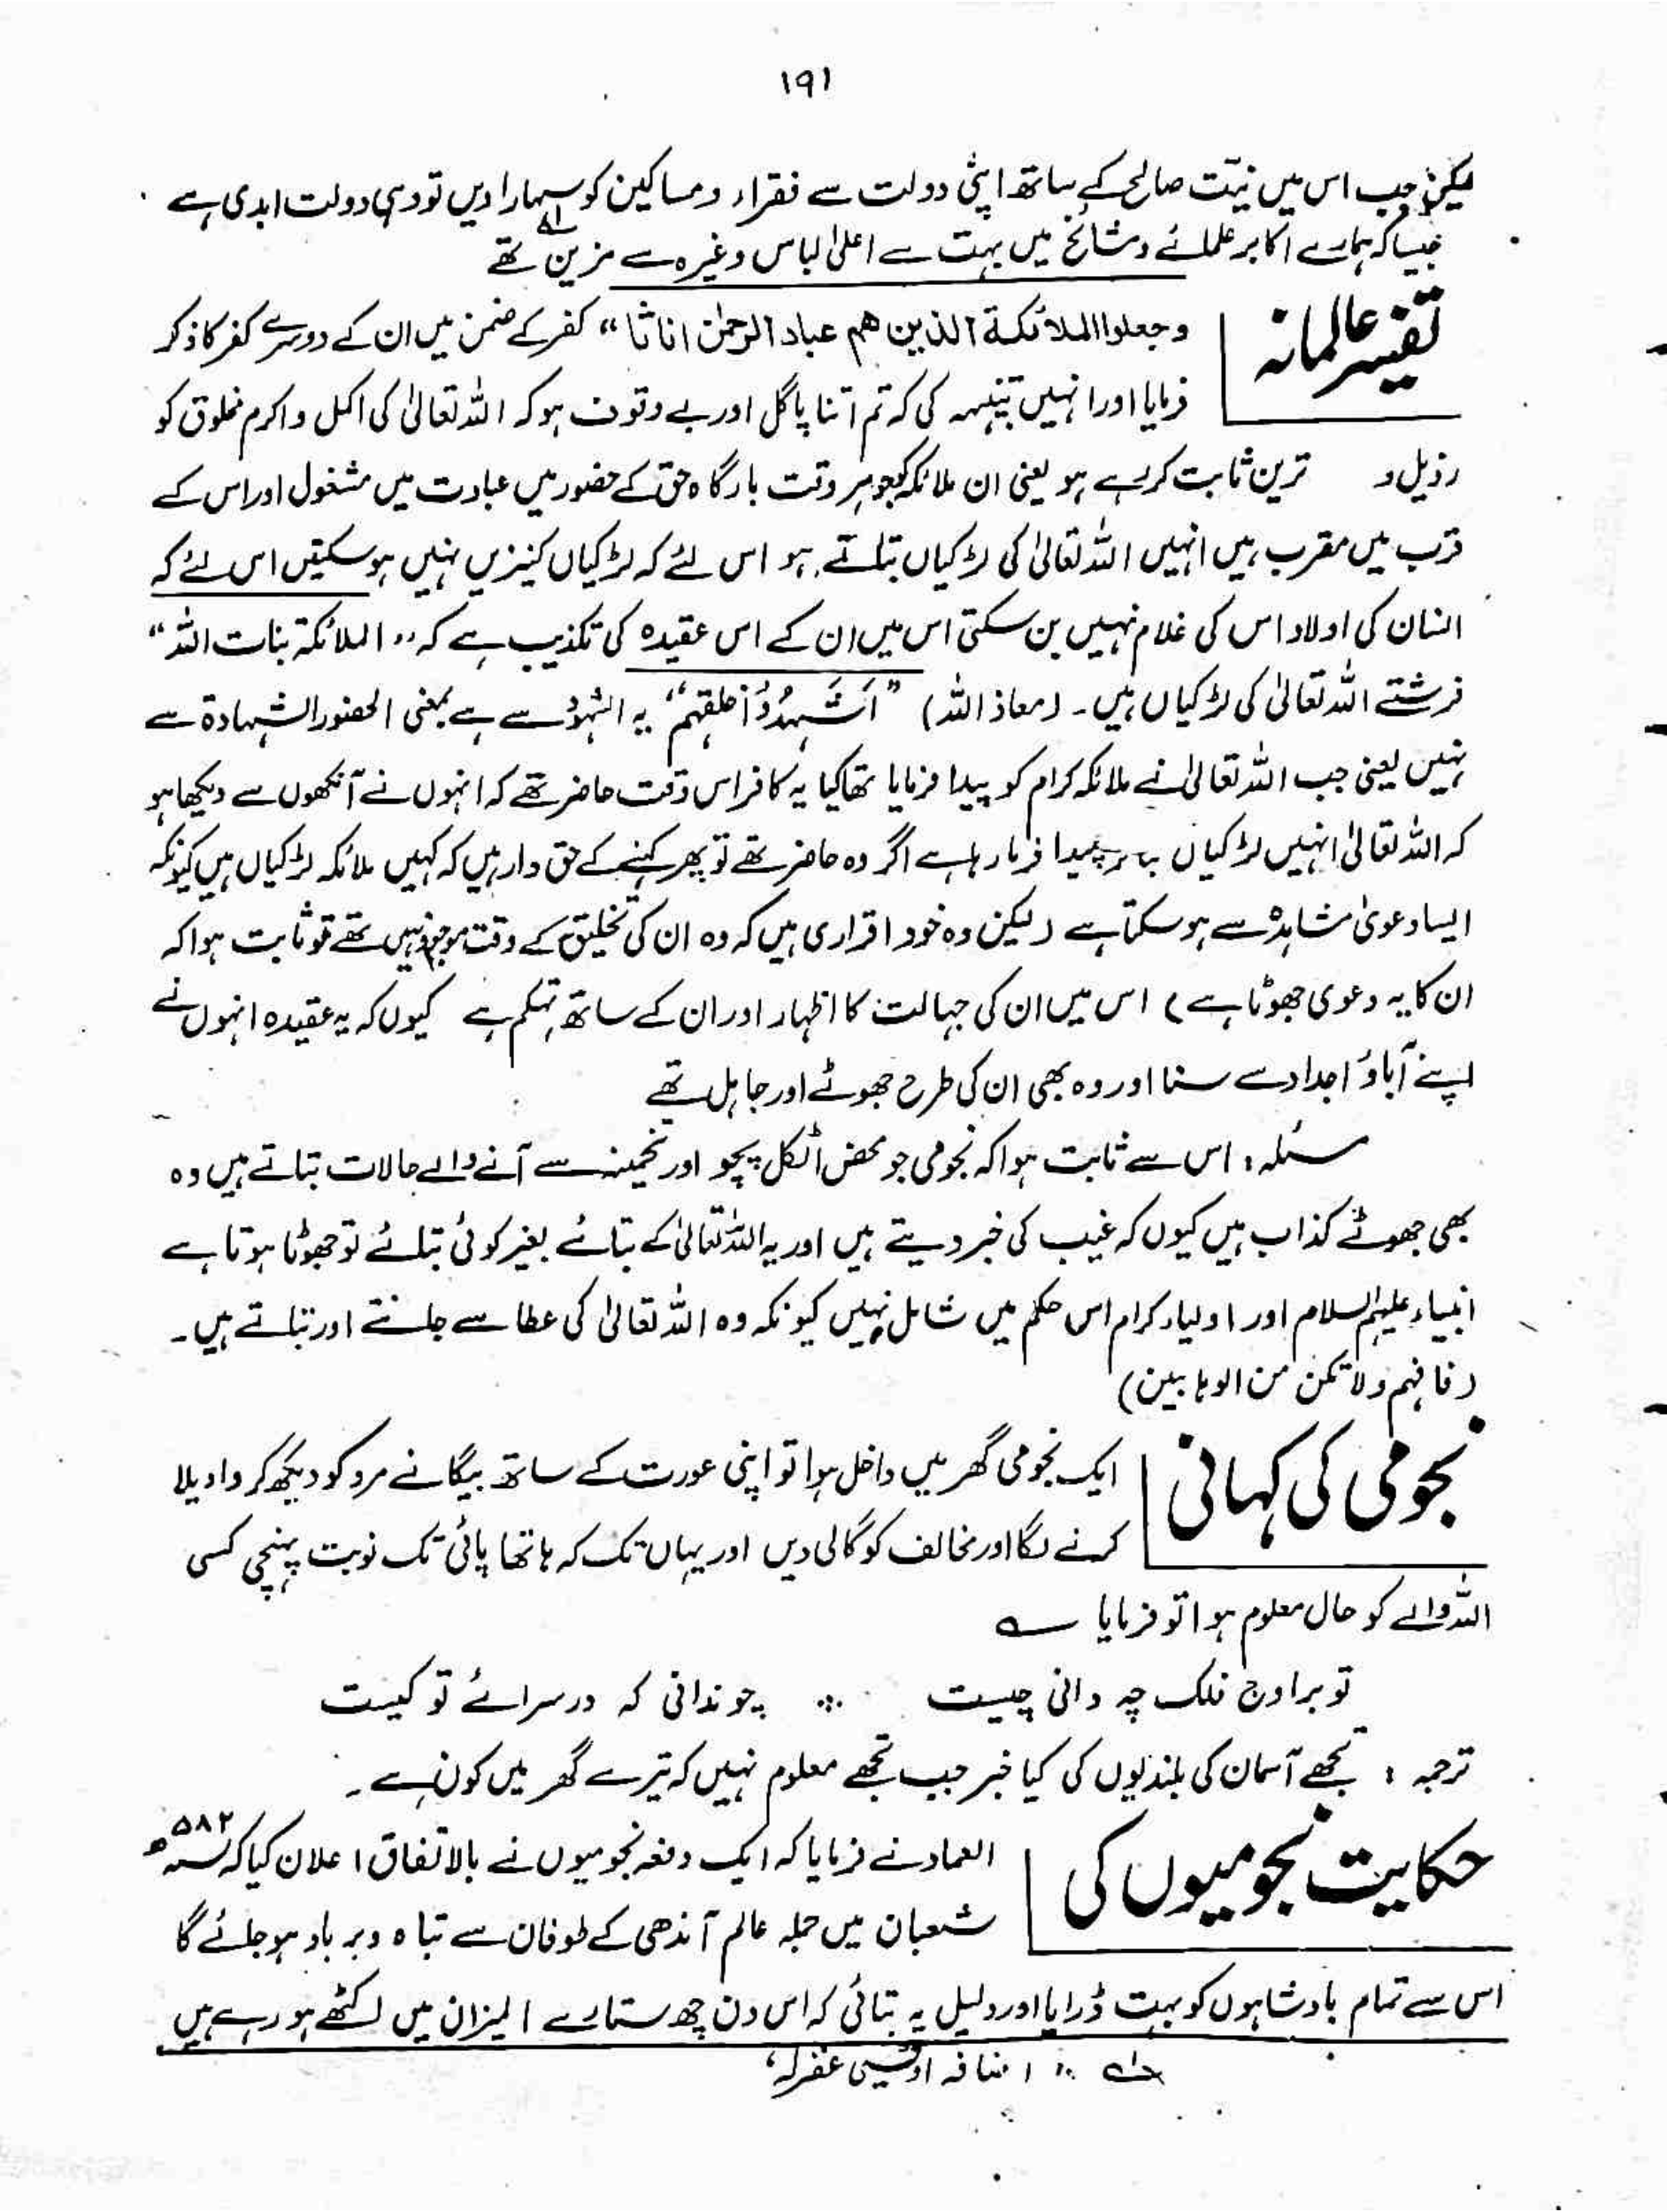 ۱۹۱
لیکن جب اس میں نیّت صالح کے ساتھ اپنی دولت سے فقراء ومساکین کو سہارا دیں تو وہی دولت ابدی ہے
جیسا کہ ہمارے اکابر علمائے ومشائخ میں بہت سے اعلیٰ لباس وغیرہ سے مزین تھے لے
تفسیر عالمانہ
وجعلوا الملائكة الذين هم عباد الرحمٰن اناثا“ کفر کے ضمن میں ان کے دوسرے کفر کا ذکر
فرمایا اور انہیں تنبیہہ کی کہ تم اتنا پاگل اور بے وقوف ہو کہ اللہ تعالیٰ کی اکمل و اکرم مخلوق کو
رذیل و ترین ثابت کر رہے ہو یعنی ان ملائکہ کو جو ہر وقت بارگاہ حق کے حضور میں عبادت میں مشغول اور اس کے
قرب میں مقرب ہیں انہیں اللہ تعالیٰ کی لڑکیاں بتاتے ہو اس لئے کہ لڑکیاں کنیزیں نہیں ہو سکتیں اس لئے کہ
انسان کی اولاد اس کی غلام نہیں بن سکتی اس میں ان کے اس عقیدہ کی تکذیب ہے کہ ,, الملائکۃ بنات اللہ“
فرشتے اللہ تعالیٰ کی لڑکیاں ہیں ۔ (معاذ اللہ) ”اَشَهِدُوْا خلقهم“ یہ الشہود سے ہے بمعنی الحضور الشہادۃ سے
نہیں یعنی جب اللہ تعالیٰ نے ملائکہ کرام کو پیدا فرمایا تھا کیا یہ کافر اس وقت حاضر تھے کہ انہوں نے آنکھوں سے دیکھا ہو
کہ اللہ تعالیٰ انہیں لڑکیاں پیدا فرما رہا ہے اگر وہ حاضر تھے تو پھر کہنے کے حق دار ہیں کہ کہیں ملائکہ لڑکیاں ہیں کیونکہ
ایسا دعویٰ مشاہدہ سے ہو سکتا ہے (لیکن وہ خود اقراری ہیں کہ وہ ان کی تخلیق کے وقت موجود نہیں تھے تو ثابت ہوا کہ
ان کا یہ دعوی جھوٹا ہے) اس میں ان کی جہالت کا اظہار اور ان کے ساتھ تہکم ہے کیوں کہ یہ عقیدہ انہوں نے
اپنے آباؤ اجداد سے سنا اور وہ بھی ان کی طرح جھوٹے اور جاہل تھے
مسئلہ : اس سے ثابت ہوا کہ نجومی جو محض اٹکل پچو اور تخمینہ سے آنے والے حالات بتاتے ہیں وہ
بھی جھوٹے کذاب ہیں کیوں کہ غیب کی خبر دیتے ہیں اور یہ اللہ تعالیٰ کے بتائے بغیر کوئی بتلائے تو جھوٹا ہوتا ہے
انبیاء علیہم السلام اور اولیاء کرام اس حکم میں شامل نہیں کیونکہ وہ اللہ تعالیٰ کی عطا سے جانتے اور بتاتے ہیں ۔
(فافہم ولا تکن من الوہابین)
نجومی کی کہانی
ایک نجومی گھر میں داخل ہوا تو اپنی عورت کے ساتھ بیگانے مرد کو دیکھ کر واویلا
کرنے لگا اور مخالف کو گالی دیں اور یہاں تک کہ ہاتھا پائی تک نوبت پہنچی کسی
اللہ والے کو حال معلوم ہوا تو فرمایا ؎
تو بر اوج فلک چہ دانی چیست ∴ چو ندانی کہ در سرائے تو کیست
ترجمہ : تجھے آسمان کی بلندیوں کی کیا خبر جب تجھے معلوم نہیں کہ تیرے گھر میں کون ہے ۔
حکایت نجومیوں کی
العماد نے فرمایا کہ ایک دفعہ نجومیوں نے بالاتفاق اعلان کیا کہ ۵۸۲ھ
شعبان میں جملہ عالم آندھی کے طوفان سے تباہ وبرباد ہو جائے گا
اس سے تمام بادشاہوں کو بہت ڈرایا اور دلیل یہ بتائی کہ اس دن چھ ستارے المیزان میں اکٹھے ہو رہے ہیں
لے ∴ اضافہ اویسی غفرلہ،